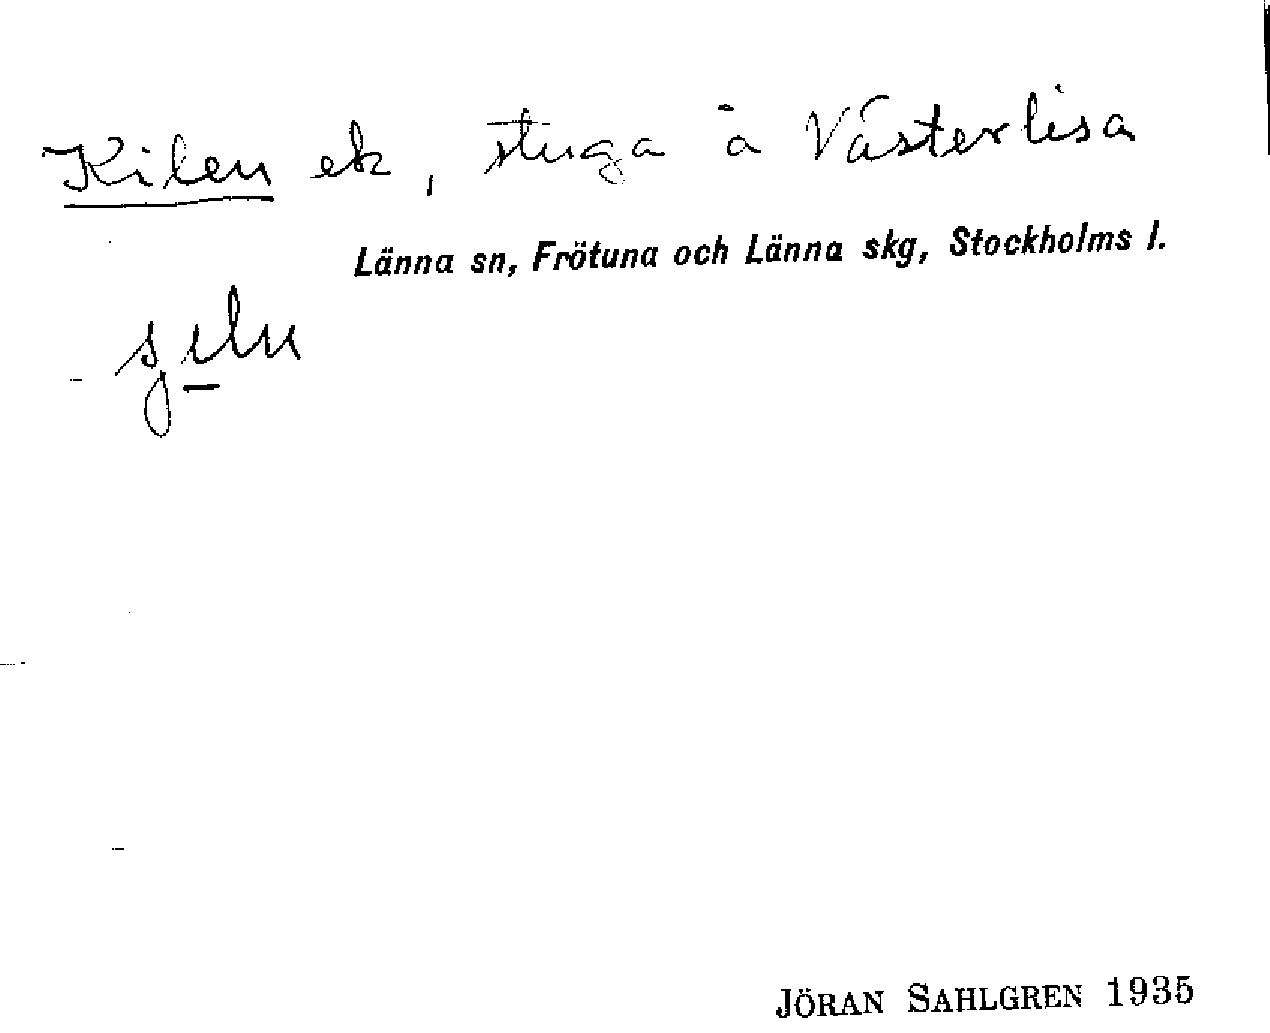 Kilen ek, stuga å Västerlisa
Länna sn, Frötuna och Länna skg, Stockholms l.
JÖRAN SAHLGREN 1935